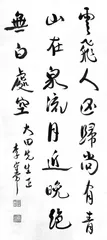 雲飛人歸尚有青
山在泉流月近晚絕
無白處空
大田先生正
李